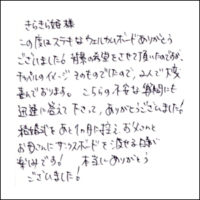 きらきら姫 様
この度はステキなウェルカムボードありがとう
ございました! 結構の希望をさせて頂いたのですが、
チャペルのイメージそのものでしたので、2人で大変
喜んでおります。こちらの不安な質問にも
迅速に答えて下さって、ありがとうございました!
結婚式をあと1ヶ月に控え、お父さんと
お母さんにサンクスボードを渡せる日が
楽しみです! 本当にありがとう
ございました!